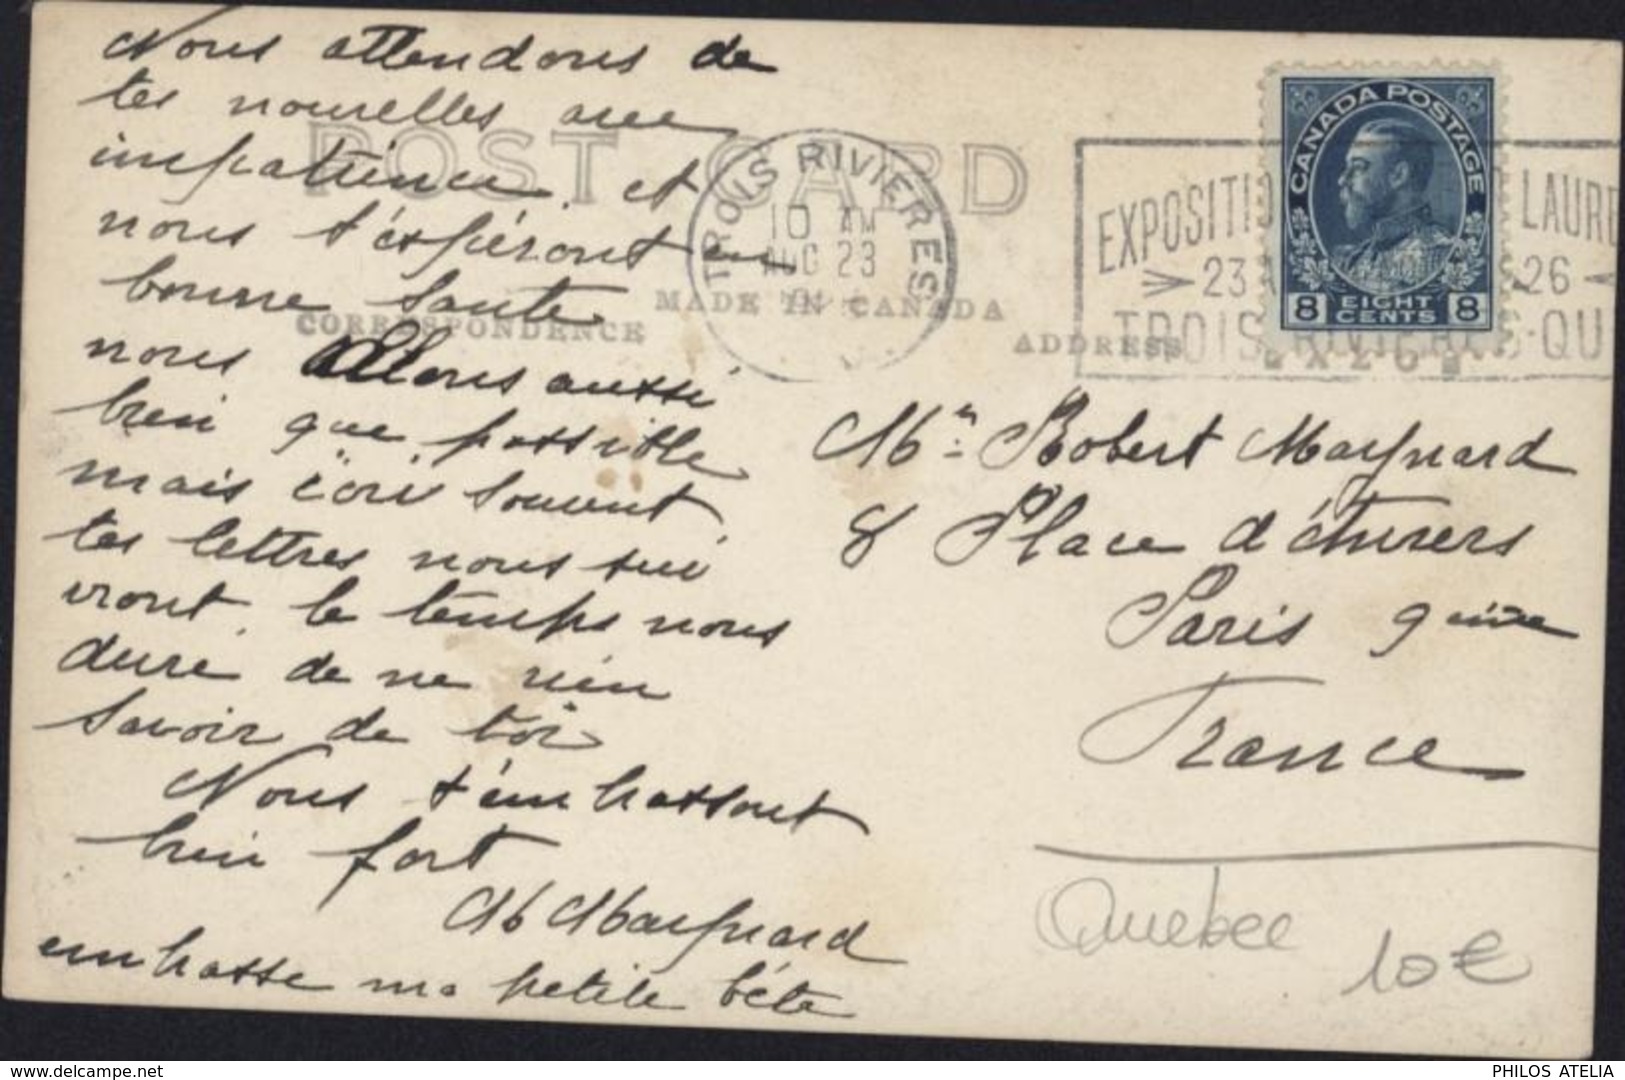 Nous attendons de
tes nouvelles avec
impatience et
nous t'éspéront en
bonne sante
nous allons aussi
bien que possible
mais écri souvent
tes lettres nous sui
vront. le temps nous
dure de ne rien
savoir de toi
Nous t'embrassont
bien fort
M Maynard
embrasse ma petite bete
POST CARD
CORRESPONDENCE
MADE IN CANADA
ADDRESS
TROIS RIVIERES
10 AM
AUG 23
EXPOSITI LAURE
23 26
TROIS-RIVIERES-QU
CANADA POSTAGE
8 EIGHT CENTS 8
Mr Robert Maynard
8 Place d'
Paris 9
France
Quebec
10€
delcampe.net
PHILOS ATELIA